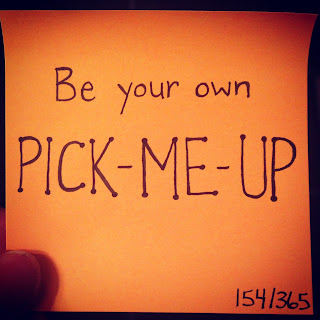 Be your own
PICK-ME-UP
154/365